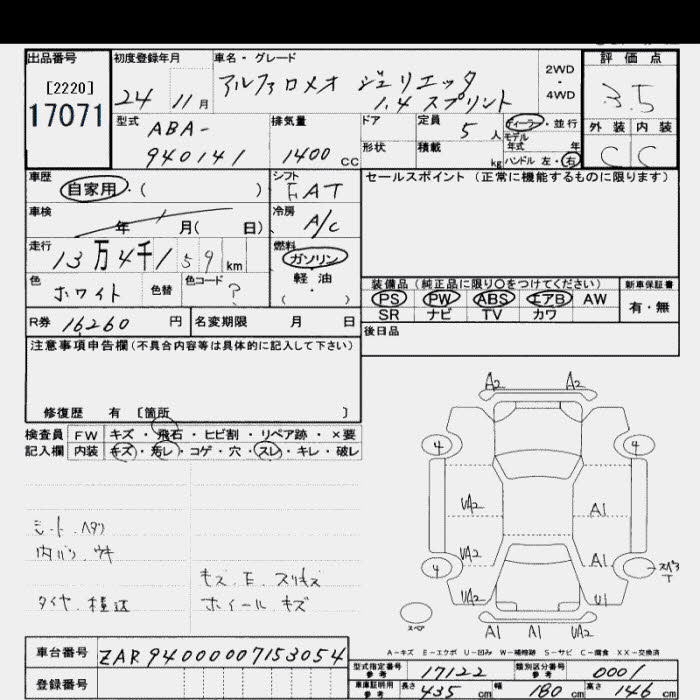 出品番号
[2220]
17071
初度登録年月
24 11月
車名・グレード
アルファロメオ ジュリエッタ
1.4 スプリント
2WD
・
4WD
評価点
3.5
外装 内装
C C
型式
ABA-
940141
排気量
1400 CC
ドア
定員
5 人
形状
積載
kg
ディーラー・並行
モデル
年式 年
ハンドル 左・右
車歴
自家用・( )
シフト
FAT
車検
年 月( 日)
冷房
A/C
走行
13万4千159 km
燃料
ガソリン
軽油
( ・ )
色
ホワイト
色替
色コード
?
R券 16260 円
名変期限 月 日
セールスポイント (正常に機能するものに限ります)
装備品 (純正品に限り○をつけてください)
PS PW ABS エアB AW
SR ナビ TV カワ
新車保証書
有・無
後日品
注意事項申告欄(不具合内容等は具体的に記入して下さい)
修復歴 有 [箇所 ]
検査員
記入欄
FW キズ・飛石・ヒビ割・リペア跡・×要
内装 キズ・汚レ・コゲ・穴・スレ・キレ・破レ
シート.ヘタリ
内バリ.ウキ
タイヤ.種違
キズ.E.スリキズ
ホイール.キズ
A2 A2
4 4
UA2 A1
UA2 A1
4 スペア
UA2 U1
スペア
A1 A1 UA2
A-キズ E-エクボ U-凹み W-補修跡 S-サビ C-腐食 XX-交換済
車台番号 ZAR94000007153054
登録番号
型式指定番号
参考
17122
類別区分番号
参考
0001
車庫証明用
参考
長さ 435 cm 幅 180 cm 高さ 146 cm